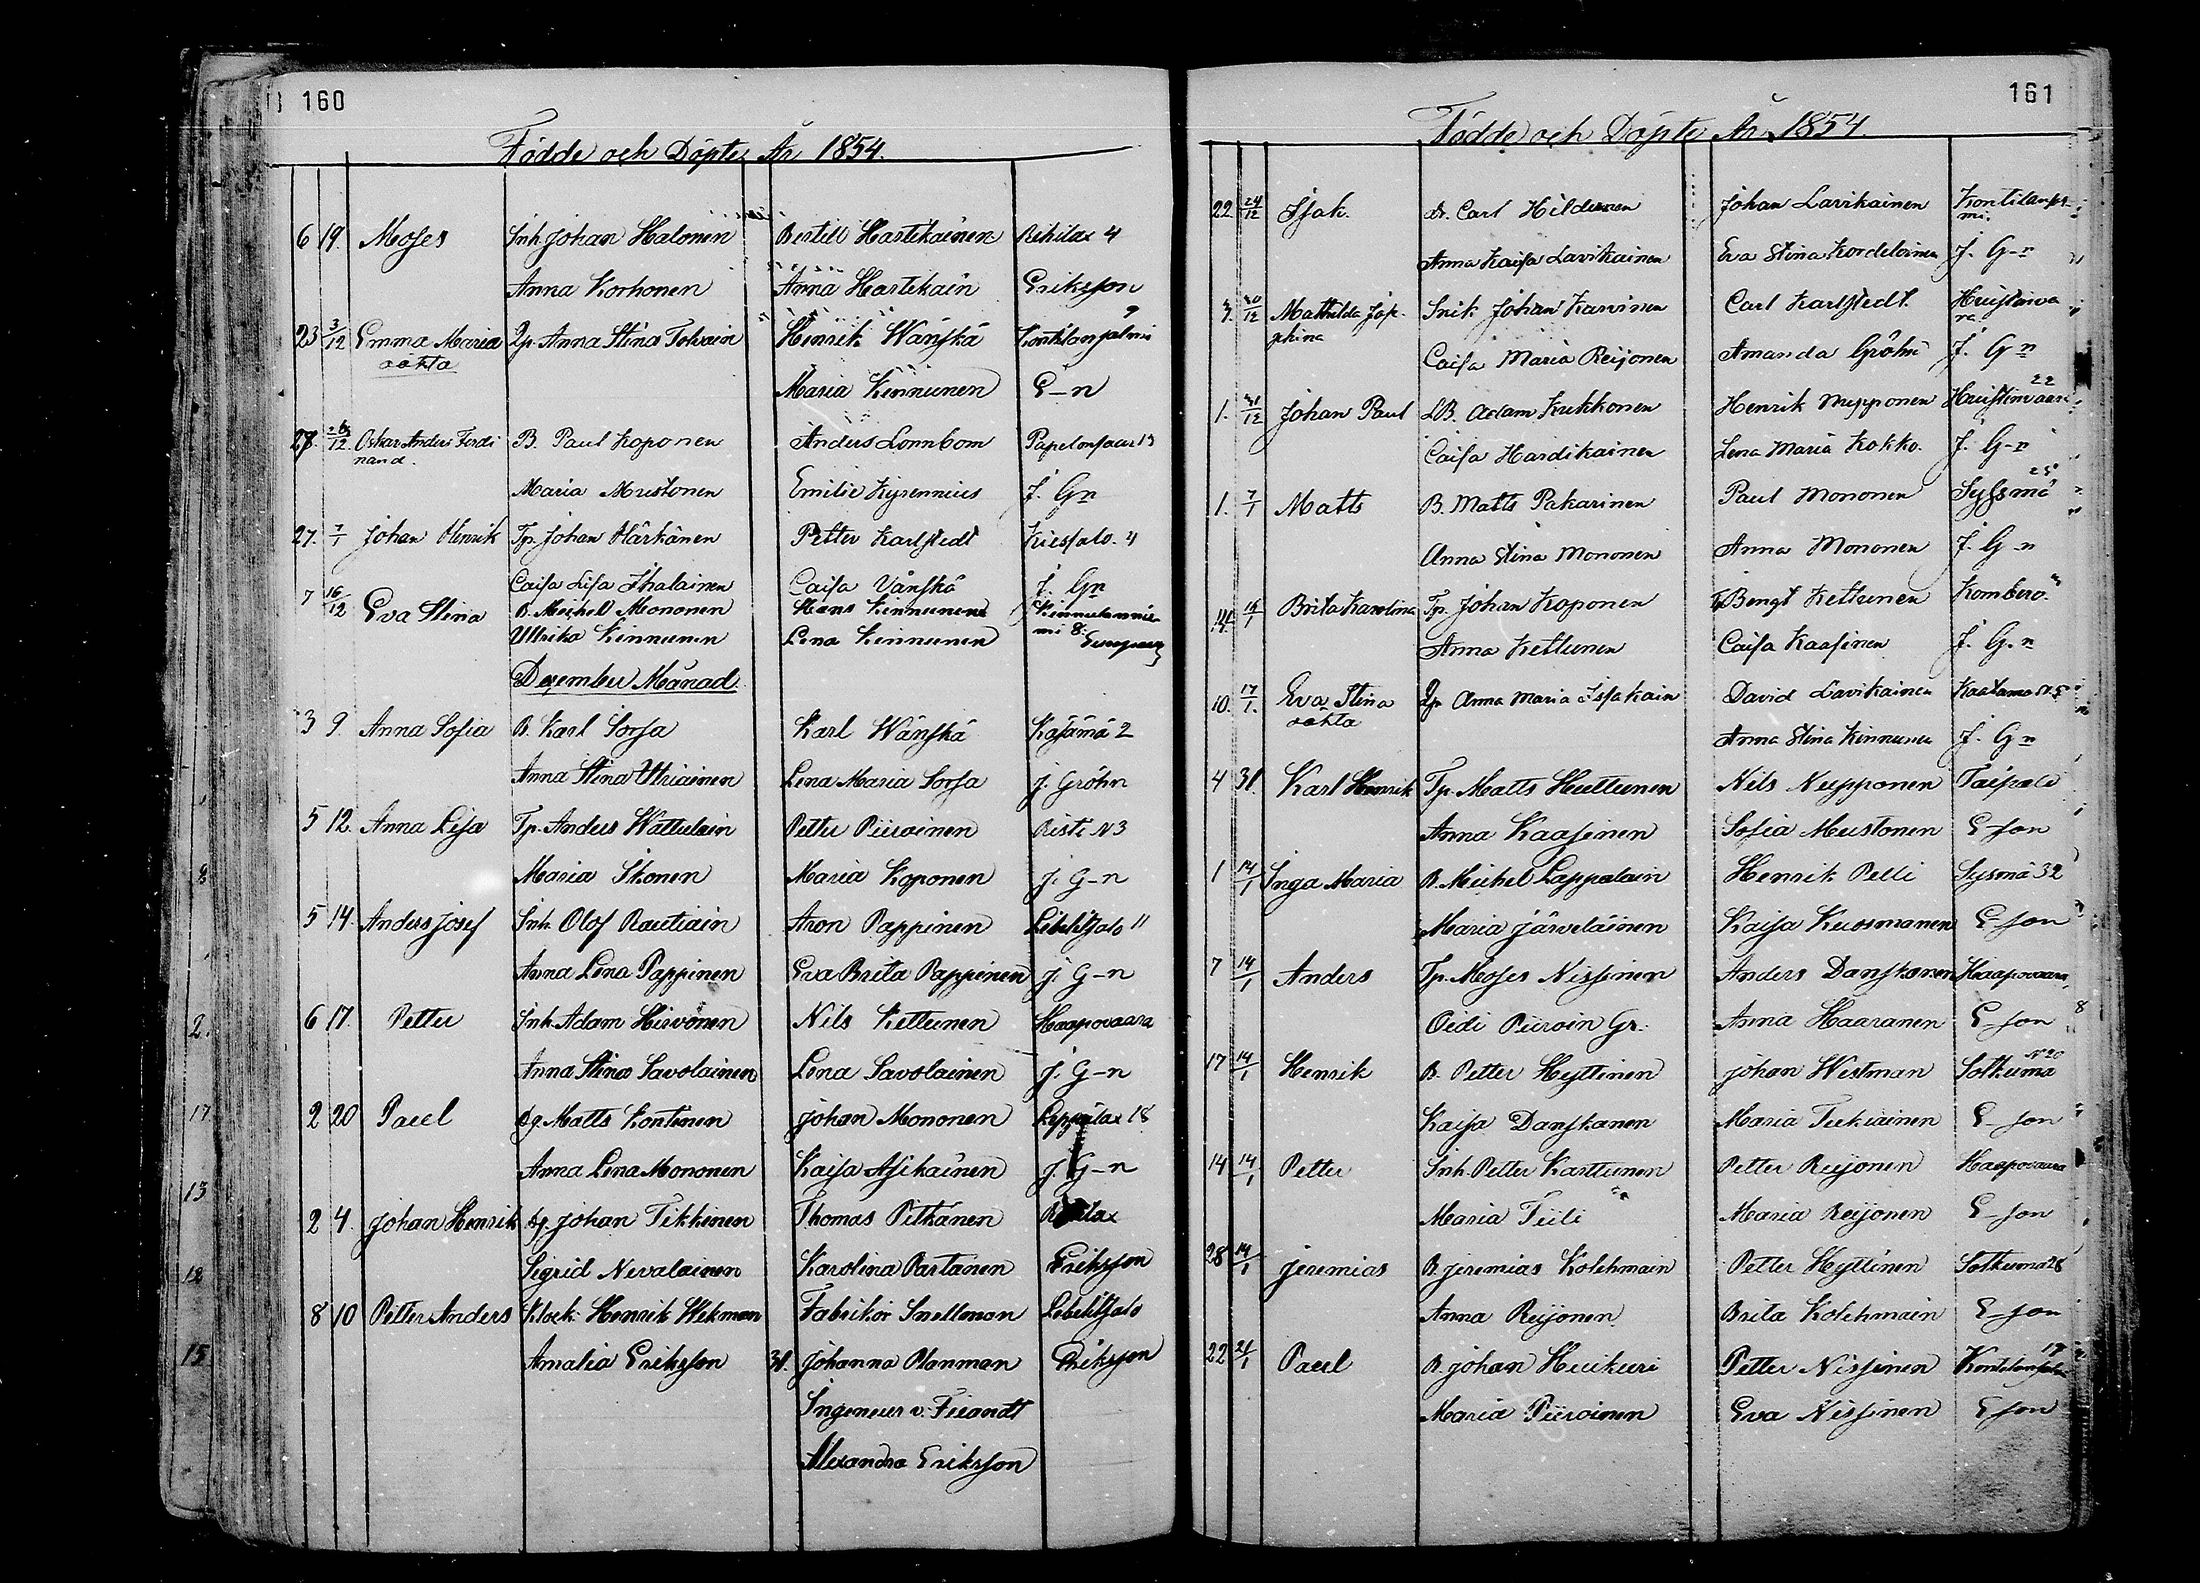 160
Födde och Döpte År 1854.
6 19. Moses Inh. Johan Halonen Bertill Hartikainen Rikilax 4
Anna Korhonen Anna Hartikain Eriksson
23 3/12 Emma Maria Qp. Anna Stina Tolvain Henrik Wänskä Kontilanpalmi 9
oäkta Maria Kinnunen E-n
28. 26/12 Oskar Anders Ferdi B. Paul Koponen Anders Lonnbom 13
nand.
Maria Mustonen Emilie Kyrennius J. Gn
27. 7/1 Johan Henrik Tp. Johan Härkänen Petter Karlstedt 4
Caisa Lisa Ihalainen Caisa Vänskä J. Gn
7 16/12 Eva Stina B. Michell Mononen Hans Kinnunen
Ullrika Kinnunen Lena Kinnunen mi 8.
December Månad
3 9. Anna Sofia B. Karl Sorsa Karl Wänskä Käsämä 2
Anna Stina Utriainen Lena Maria Sorsa J. Gröhn
5 12. Anna Lisa Tp. Anders Wattulain Petter Piiroinen Risti N3
Maria Ikonen Maria Koponen J. G-n
5 14. Anders Josef Inh. Olof Rautiain Aron Pappinen Libelitsalo 11
Anna Lena Pappinen Eva Brita Pappinen J. G-n
6 17. Petter Inh. Adam Hirvonen Nils Kettunen Haapovaara
Anna Stina Savolainen Lena Savolainen J. G-n
2 20 Paul Matts Kontinen Johan Mononen Leppälax 18
Anna Lena Mononen Kaisa Asikainen J. G-n
2 4. Johan Henrik Johan Tikkinen Thomas Pitkänen
Sigrid Nevalainen Karolina Partanen Eriksson
8 10 Petter Anders Klock. Henrik Wekman Fabrikör Snellman Libelitsalo
Amalia Eriksson 31. Johanna Planman Eriksson
Ingenieur v. Fieandt
Alexandra Eriksson
161
Födde och Döpte År 1854.
22. 24/12 Isak. Dr. Carl Hildunen Johan Lavikainen Kontilanpal-
mi.
Anna Kaisa Lavikainen Eva Stina Kordelainen J. G-n
3. 30/12 Mathilda Jose- Inh. Johan Karvinen Carl Karlstedt. Heristiva
phina ra.
Caisa Maria Reijonen Amanda Gröhn J. G n
1. 31/12 Johan Paul LB. Adam Kukkonen Henrik Nupponen 22
Caisa Hardikainen Lena Maria Kokko. J. G-n
1. 7/1 Matts B. Matts Pakarinen Paul Mononen Sysmä 25
Anna Stina Mononen Anna Mononen J. G-n
14. 14/1 Brita Karolina Tp. Johan Koponen Bengt Kettunen Kombero
Anna Kettunen Caisa Kaasinen J. G.n
10. 17/1. Eva Stina Qp. Anna Maria Issakain David Lavikainen Kaatamo
oäkta Anna Stina Kinnunen J. Gn
4 31. Karl Henrik Tp. Matts Huttunen Nils Nupponen Taipale
Anna Kaasinen Sofia Mustonen E-son
1 14/1 Inga Maria B. Michel Lappalain Henrik Pelli Sysmä 32
Maria Järveläinen Kaisa Kuosmanen E-son
7 14/1 Anders Tp. Moses Nissinen Anders Danskanen Haapovaara
Oidi Piiroin Gr. Anna Haaranen E-son 8
17 14/1 Henrik B. Petter Hyttinen Johan Westman Sotkuma N20
Kaisa Danskanen Maria Tukiainen E-son
14 14/1 Petter Inh. Petter Karttunen Petter Reijonen Haapovaara
Maria Tiili Maria Reijonen E-son
28 14/1 Jeremias B. Jeremias Kolehmain Petter Hyttinen Sotkuma 28
Anna Reijonen Brita Kolehmain E-son
22 21/1 Paul B. Johan Huikuri Petter Nissinen 19
Maria Piiroinen Eva Nissinen E son